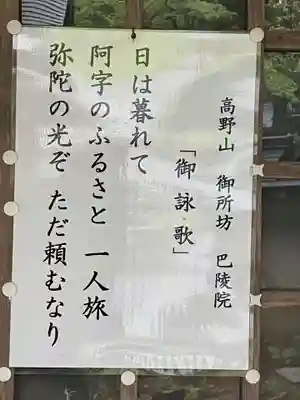 高野山 御所坊 巴陵院
「御詠歌」
日は暮れて
阿字のふるさと 一人旅
弥陀の光ぞ ただ頼むなり